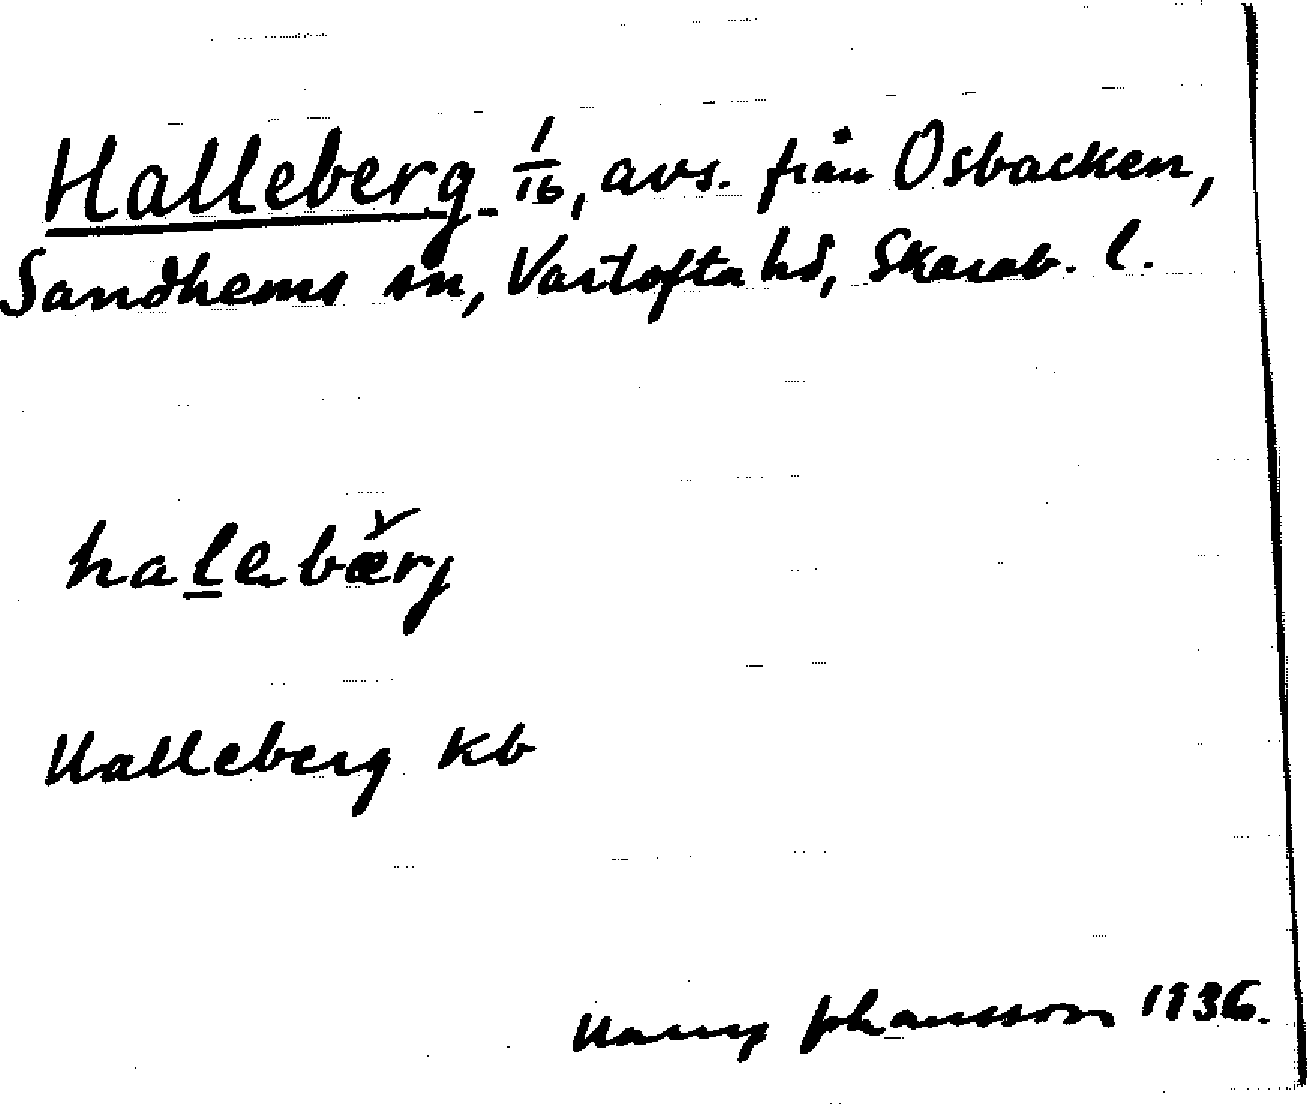 Halleberg 1/16, avs. från Osbacken,
Sandhems sn, Vartofta hd, Skarab. l.
halebærj
Halleberg Kb
Harry Johansson 1936.